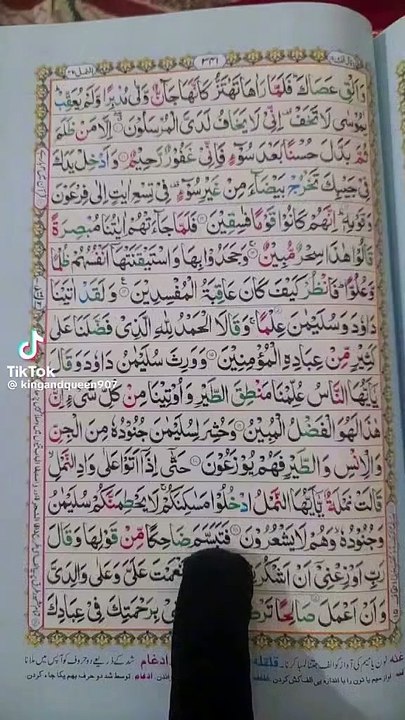 النمل ٢٧
٣٣١
وَاَلْقِ عَصَاكَ فَلَمَّا رَاٰهَا تَهْتَزُّ كَاَنَّهَا جَآنٌّ وَّلّٰى مُدْبِرًا وَّلَمْ يُعَقِّبْ
يٰمُوْسٰى لَا تَخَفْ اِنِّىْ لَا يَخَافُ لَدَىَّ الْمُرْسَلُوْنَ اِلَّا مَنْ ظَلَمَ
ثُمَّ بَدَّلَ حُسْنًۢا بَعْدَ سُوْٓءٍ فَاِنِّىْ غَفُوْرٌ رَّحِيْمٌ وَاَدْخِلْ يَدَكَ
فِىْ جَيْبِكَ تَخْرُجْ بَيْضَآءَ مِنْ غَيْرِ سُوْٓءٍ فِىْ تِسْعِ اٰيٰتٍ اِلٰى فِرْعَوْنَ
وَقَوْمِهٖ اِنَّهُمْ كَانُوْا قَوْمًا فٰسِقِيْنَ فَلَمَّا جَآءَتْهُمْ اٰيٰتُنَا مُبْصِرَةً
قَالُوْا هٰذَا سِحْرٌ مُّبِيْنٌ وَجَحَدُوْا بِهَا وَاسْتَيْقَنَتْهَآ اَنْفُسُهُمْ ظُلْمًا
وَّعُلُوًّا فَانْظُرْ كَيْفَ كَانَ عَاقِبَةُ الْمُفْسِدِيْنَ وَلَقَدْ اٰتَيْنَا
دَاوٗدَ وَسُلَيْمٰنَ عِلْمًا وَقَالَا الْحَمْدُ لِلّٰهِ الَّذِىْ فَضَّلَنَا عَلٰى
كَثِيْرٍ مِّنْ عِبَادِهِ الْمُؤْمِنِيْنَ وَوَرِثَ سُلَيْمٰنُ دَاوٗدَ وَقَالَ
يٰٓاَيُّهَا النَّاسُ عُلِّمْنَا مَنْطِقَ الطَّيْرِ وَاُوْتِيْنَا مِنْ كُلِّ شَىْءٍ اِنَّ
هٰذَا لَهُوَ الْفَضْلُ الْمُبِيْنُ وَحُشِرَ لِسُلَيْمٰنَ جُنُوْدُهٗ مِنَ الْجِنِّ
وَالْاِنْسِ وَالطَّيْرِ فَهُمْ يُوْزَعُوْنَ حَتّٰٓى اِذَآ اَتَوْا عَلٰى وَادِ النَّمْلِ
قَالَتْ نَمْلَةٌ يّٰٓاَيُّهَا النَّمْلُ ادْخُلُوْا مَسٰكِنَكُمْ لَا يَحْطِمَنَّكُمْ سُلَيْمٰنُ
وَجُنُوْدُهٗ وَهُمْ لَا يَشْعُرُوْنَ فَتَبَسَّمَ ضَاحِكًا مِّنْ قَوْلِهَا وَقَالَ
رَبِّ اَوْزِعْنِىْٓ اَنْ اَشْكُرَ عَلَىَّ وَعَلٰى وَالِدَىَّ
وَاَنْ اَعْمَلَ صَالِحًا بِرَحْمَتِكَ فِىْ عِبَادِكَ
TikTok
@kingandqueen907